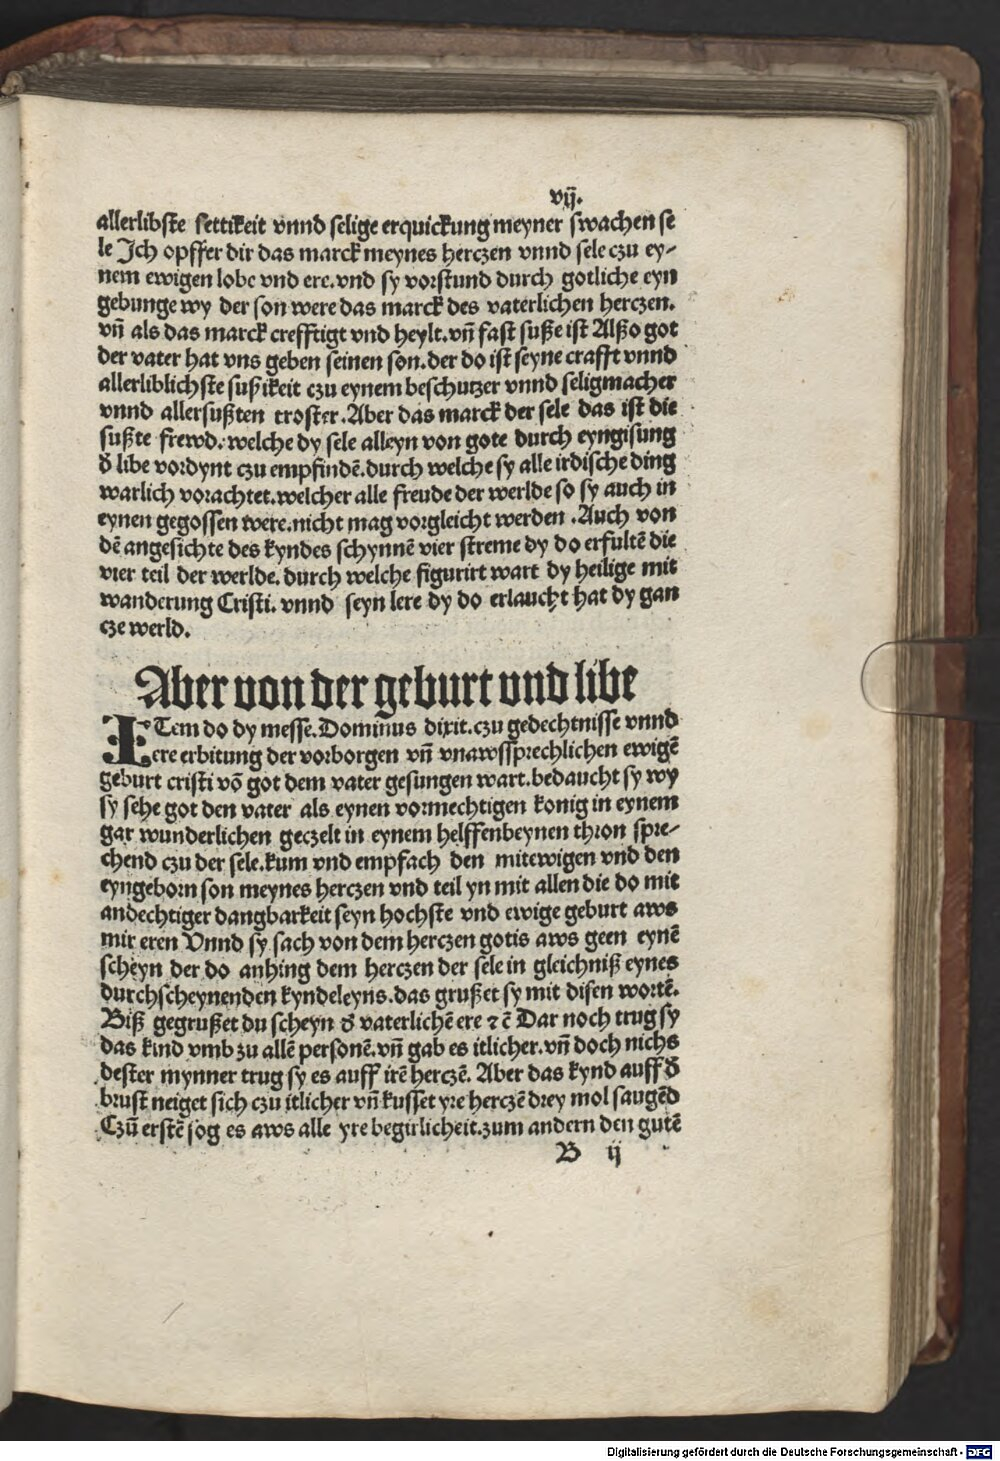 vij.
allerlibste settikeit vnnd selige erquickung meyner swachen se
le Jch opffer dir das marck meynes herczen vnnd sele czu ey-
nem ewigen lobe vnd ere. vnd sy vorstund durch gotliche eyn
gebunge wy der son were das marck des vaterlichen herczen.
vn̄ als das marck crefftigt vnd heylt. vn̄ fast suße ist Alßo got
der vater hat vns geben seinen son. der do ist seyne crafft vnnd
allerliblichste sußikeit czu eynem beschutzer vnnd seligmacher
vnnd allersußten troster. Aber das marck der sele das ist die
sußte frewd. welche dy sele alleyn von gote durch eyngisung
d̄ libe vordynt czu empfindē. durch welche sy alle irdische ding
warlich vorachtet. welcher alle freude der werlde so sy auch in
eynen gegossen were. nicht mag vorgleicht werden . Auch von
dē angesichte des kyndes schynnē vier streme dy do erfultē die
vier teil der werlde. durch welche figurirt wart dy heilige mit
wanderung Cristi. vnnd seyn lere dy do erlaucht hat dy gan
cze werld.
Aber von der geburt vnd libe
ITem do dy messe. Dominus dixit. czu gedechtnisse vnnd
ere erbitung der vorborgen vn̄ vnawssprechlichen ewigē
geburt cristi vō got dem vater gesungen wart. bedaucht sy wy
sy sehe got den vater als eynen vormechtigen konig in eynem
gar wunderlichen geczelt in eynem helffenbeynen thron spre-
chend czu der sele. kum vnd empfach den mitewigen vnd den
eyngeborn son meynes herczen vnd teil yn mit allen die do mit
andechtiger dangbarkeit seyn hochste vnd ewige geburt aws
mir eren Vnnd sy sach von dem herczen gotis aws geen eynē
scheyn der do anhing dem herczen der sele in gleichniß eynes
durchscheynenden kyndeleyns. das grußet sy mit disen wortē.
Biß gegrußet du scheyn d̄ vaterlichē ere ⁊ c̄ Dar noch trug sy
das kind vmb zu allē personē. vn̄ gab es itlicher. vn̄ doch nichs
dester mynner trug sy es auff irē herczē. Aber das kynd auff d̄
brust neiget sich czu itlicher vn̄ kusset yre herczē drey mol saugēd
Czū erstē sog es aws alle yre begirlicheit. zum andern den gutē
B ij
Digitalisierung gefördert durch die Deutsche Forschungsgemeinschaft - DFG